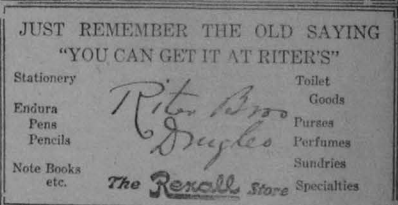 JUST REMEMBER THE OLD SAYING
"YOU CAN GET IT AT RITER'S"
Stationery
Endura
Pens
Pencils
Note Books
etc.
Riter Bros
Drug Co
The Rexall Store
Toilet
Goods
Purses
Perfumes
Sundries
Specialties